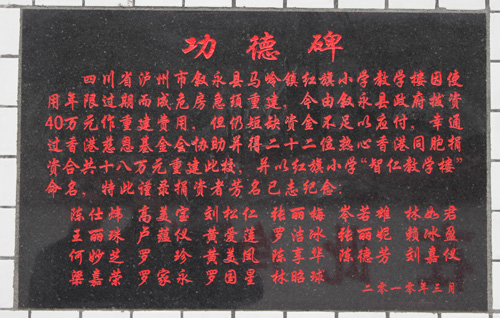 功德碑
四川省泸州市叙永县马岭镇红旗小学教学楼因使
用年限过期而成危房急须重建，今由叙永县政府拔资
40万元作重建费用，但仍短缺资金不足以应付，幸通
过香港慈恩基金会协助并得二十二位热心香港同胞捐
资合共十八万元重建此校，并以红旗小学“智仁教学楼”
命名，特此谨录捐资者芳名已志纪念：
陈仕炜 高美宝 刘松仁 张丽梅 岑若雄 林如君
王丽珠 卢蕴仪 黄爱莲 罗洁冰 张丽妮 赖冰盈
何妙芝 罗珍 黄美凤 陈享华 陈德芳 刘嘉仪
梁嘉荣 罗家永 罗国星 林昭球
二零一零年三月